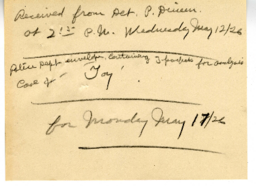 Received from Det. P. Dineen
at 2:15 P.M. Wednesday May 12/26
Police Dept envelope Containing 3 packets for analysis
Case of "Foy"
for Monday May 17/26